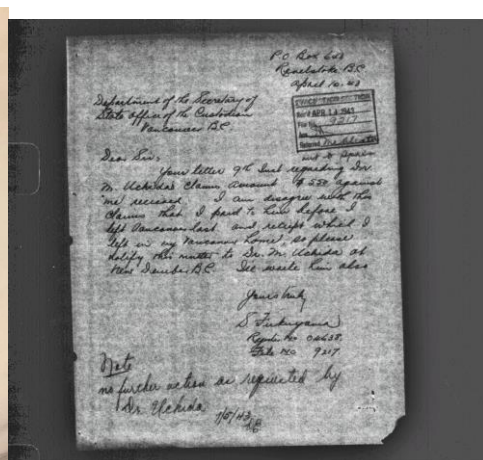 P.O. Box 6
Revelstoke B.C.
April 10. 43
Department of the Secretary of
State office of the Custodian
Vancouver BC
REC'D APR 14 1943
File No. 9217
Ans.
Referred
Dear Sir,
Your letter 9th Inst regarding Dr.
M. Uchida's Claims, amount $5.50 against
me received. I am disagree with this
Claims that I paid to him before I
left Vancouver last and reciept which I
left in my Vancouver home, so please
notify this matter to Dr. M. Uchida at
New Denver B.C. I'll wrote him also
Yours truly
S. Fukuyama
Register No
File No 9217
Note
no further action as requested by
Dr Uchida
7/5/43